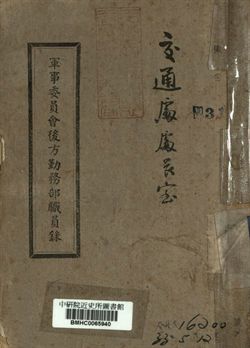 交通處處長室
軍事委員會後方勤務部職員錄
中研院近史所圖書館
BMHC0065940
16200